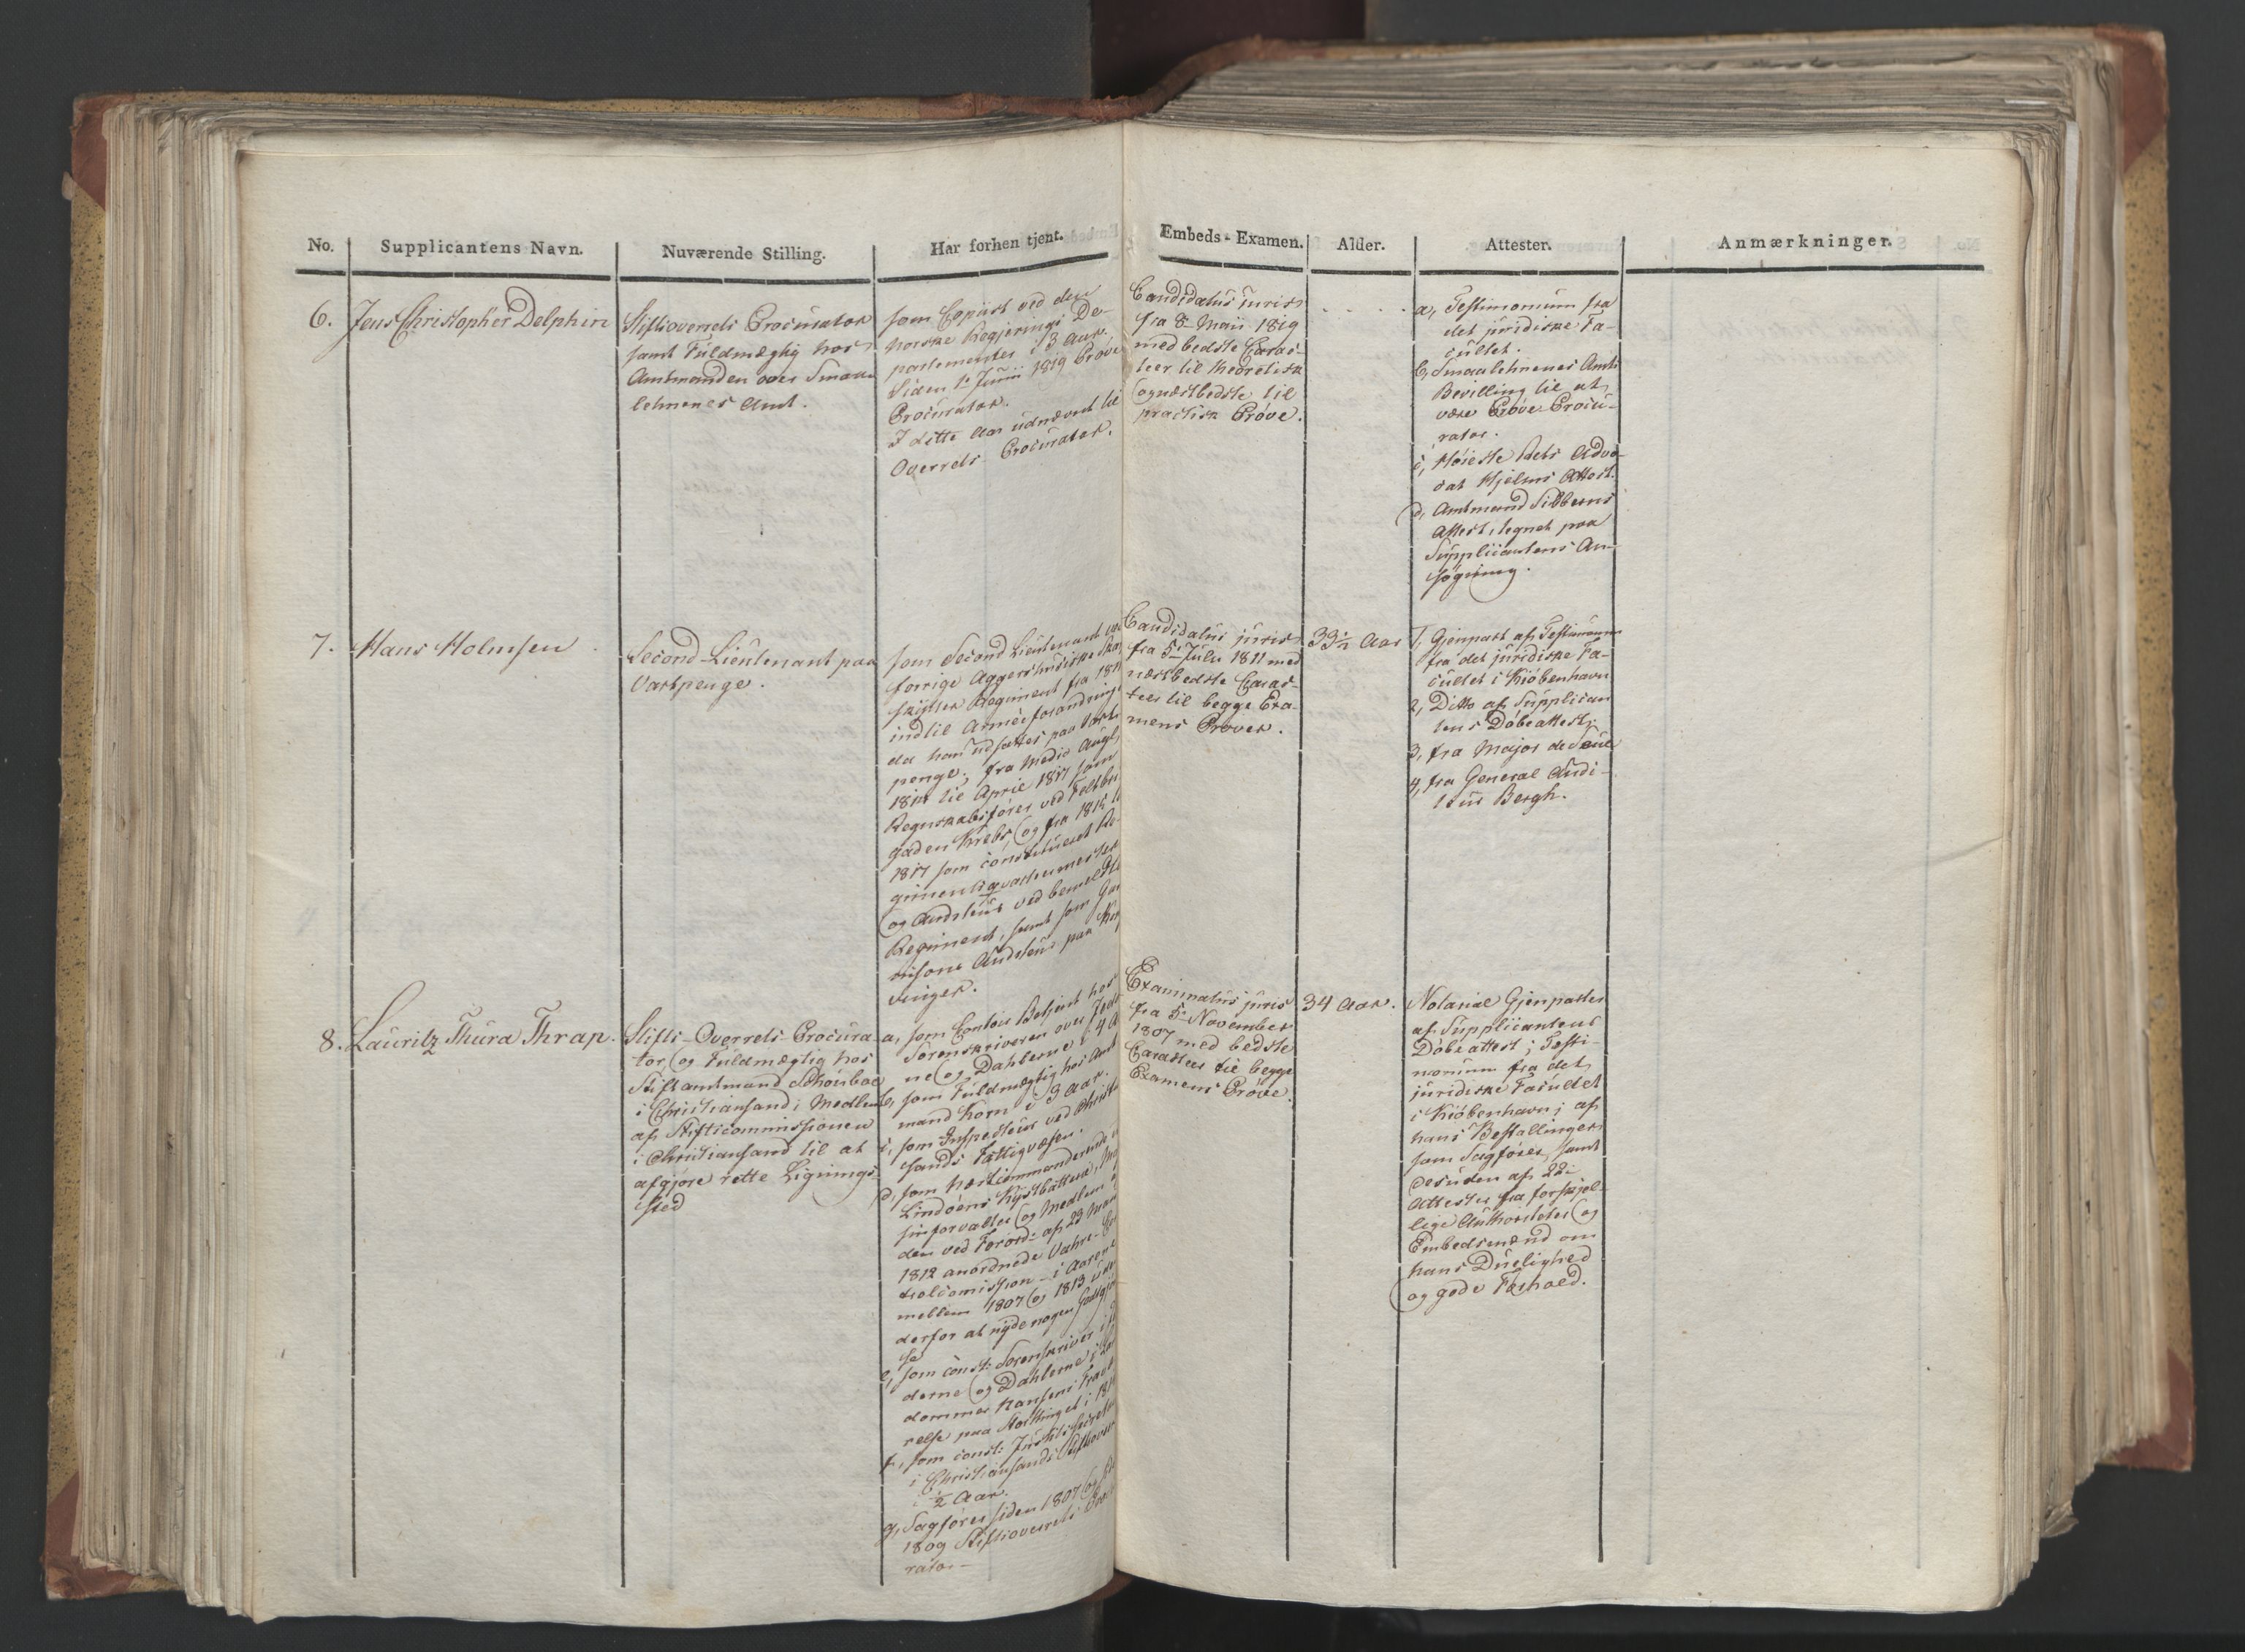 No.
Supplicantens Navn.
Nuværende Stilling.
Har forhen tjent.
Embeds-Examen.
Alder.
Attester.
Anmærkninger.
6.
Jens Christopher Delphin
Stiftsoverrets Procurator
samt Fuldmægtig hos
Amtmanden over Smaae
lehnenes Amt.
som Copiist ved den
norske Regjerings De-
partementer i 3 Aar.
Siden 1e Junii 1819 Prøve
Procurator.
I dette Aar udnævnt til
Overrets Procurator.
Candidatus juris
fra 8e Maii 1819
med bedste Carac-
teer til theoretisk
og næstbedste til
practisk Prøve.
. . . .
a, Testimonium fra
det juridiske Fa-
cultet.
b, Smaalehnenes Amts
Bevilling til at
være Prøve-Procu-
rator.
c, Høieste Rets Advo-
cat Hjelms Attest.
d, Amtmand Sibberns
Attest, tegnet paa
Supplicantens An-
søgning.
7.
Hans Holmsen
Second-Lieutenant paa
Vartpenge.
som Second Lieutenant ved
forrige Aggershusiske Skar
skytter Regiment fra 181
indtil Arméeforandringen
da han udsattes paa Vart-
penge; fra Medio Augt,
1814 til April 1817 som
Regnskabsfører ved Feltbri
gaden Krebs, og fra 1815 ti
1817 som constitueret Re-
gimentsqvarteermester
og Auditeur ved bemeldte
Regiment, samt som Gar
nisons Auditeur paa Kongs
vinger.
Candidatus juris
fra 5e Julii 1811 med
næstbedste Carac-
teer til begge Exa-
mens Prøver.
33½ Aar
1, Gjenpart af Testimonium
fra det juridiske Fa-
cultet i Kiøbenhavn
2, Ditto af Supplican
tens Døbeattest;
3, fra Major de Seue
4, fra General Audi-
teur Bergh.
8.
Lauritz Thura Thrap.
Stifts-Overrets-Procura
tor, og Fuldmægtig hos
Stiftamtmand Schouboe
i Christiansand; Medlem
af Stifticommissionen
i Christiansand til at
afgjøre rette Lignings-
sted
a, som Contoir Betjent hos
Sorenskriveren over Jede
ne og Dahlerne i 4 A
b, som Fuldmægtig hos Amt
mand Korn i 3 Aar.
c, som Inspecteur ved Christia
sands Fattigvæsen.
d, som Næstcommanderende
Lindøens Kystbatterie, Ma
sinforvalter og Medlem
den ved Forord: af 23 Mar
1812 anordnede Vahre-Con
trolcomission - i Aarene
mellem 1807 og 1813 uden
derfor at nyde nogen Godtgjø
se
e, som const: Sorenskriver i Je
derne og Dahlerne i
dommer Hansens Fravæ
relse paa Storthinget i 181
f, som const: Justitssecretair
i Christiansands Stiftover
i ½ Aar.
g, Sagfører siden 1807 og
1809 Stiftsoverrets Procu
rator -
Examinatus juris
fra 5e November
1807 med bedste
Caracteer til begge
Examens Prøve.
34 Aar.
Notarial Gjenparter
af Supplicantens
Døbeattest; Testi-
monium fra det
juridiske Facultet
i Kiøbenhavn; af
hans Bestallinger
som Sagfører, samt
desuden af 22
Attester fra forskjel-
lige Authoriteter og
Embedsmænd om
hans Duelighed
og gode Forhold.